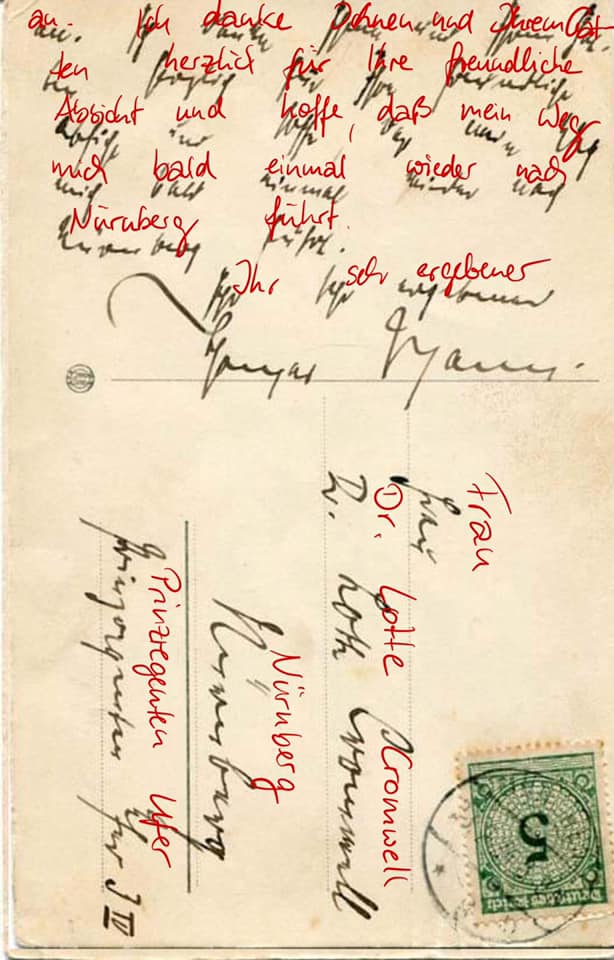 an. Ich danke Ihnen und Ihrem Gat
ten herzlich für Ihre freundliche
Absicht und hoffe, daß mein Weg
mich bald einmal wieder nach
Nürnberg führt.
Ihr sehr ergebener
Thomas Mann.
Frau
Dr. Lotte Cromwell
Nürnberg
Prinzregenten Ufer 3 IV
5
Deutsches Reich